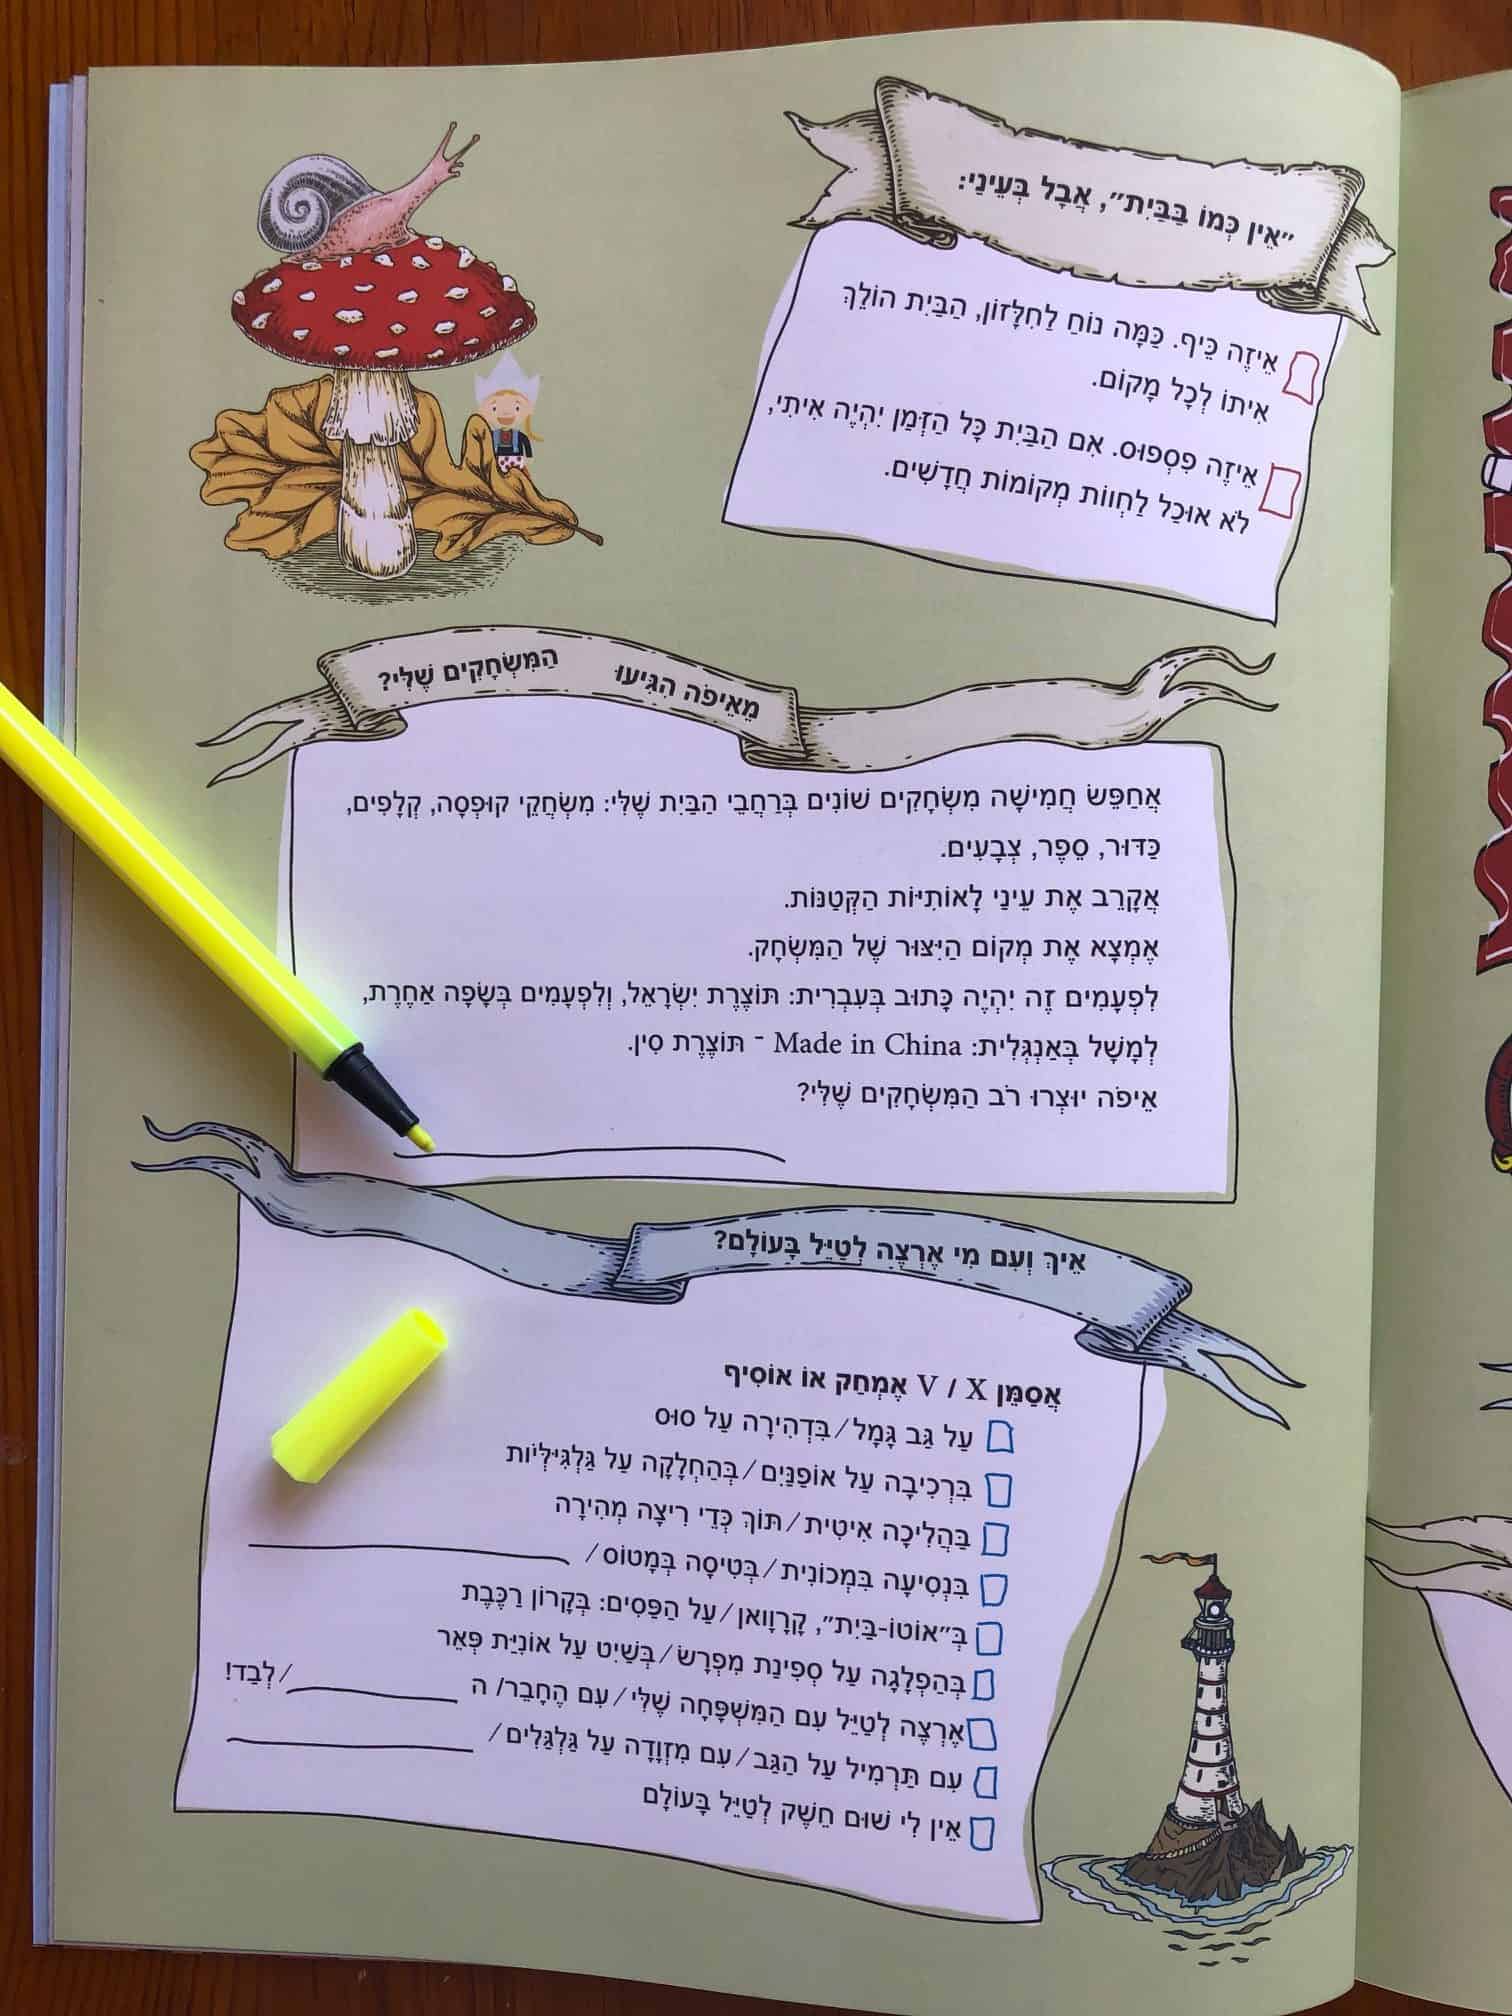 "אֵין כְּמוֹ בַּבַּיִת", אֲבָל בְּעֵינַי:
אֵיזֶה כֵּיף. כַּמָּה נוֹחַ לַחִלָּזוֹן, הַבַּיִת הוֹלֵךְ
אִיתּוֹ לְכָל מָקוֹם.
אֵיזֶה פִסְפוּס. אִם הַבַּיִת כָּל הַזְּמַן יִהְיֶה אִיתִּי,
לֹא אוּכַל לַחְווֹת מְקוֹמוֹת חֲדָשִׁים.
מֵאֵיפֹה הִגִּיעוּ הַמִּשְׂחָקִים שֶׁלִּי?
אֲחַפֵּשׂ חֲמִישָּׁה מִשְׂחָקִים שׁוֹנִים בְּרַחֲבֵי הַבַּיִת שֶׁלִּי: מִשְׂחֲקֵי קוּפְסָה, קְלָפִים,
כַּדּוּר, סֵפֶר, צְבָעִים.
אֲקָרֵב אֶת עֵינַי לָאוֹתִיּוֹת הַקְּטַנּוֹת.
אֶמְצָא אֶת מְקוֹם הַיִּצּוּר שֶׁל הַמִּשְׂחָק.
לִפְעָמִים זֶה יִהְיֶה כָּתוּב בְּעִבְרִית: תּוֹצֶרֶת יִשְׂרָאֵל, וְלִפְעָמִים בְּשָׂפָה אַחֶרֶת,
לְמָשָׁל בְּאַנְגְּלִית: Made in China - תּוֹצֶרֶת סִין.
אֵיפֹה יוּצְרוּ רֹב הַמִּשְׂחָקִים שֶׁלִּי?
אֵיךְ וְעִם מִי אֶרְצֶה לְטַיֵּל בָּעוֹלָם?
אֲסַמֵּן V / X אֶמְחַק אוֹ אוֹסִיף
עַל גַּב גָּמָל/בִּדְהִירָה עַל סוּס
בִּרְכִיבָה עַל אוֹפַנַּיִם/בְּהַחְלָקָה עַל גַּלְגִּילִּיּוֹת
בַּהֲלִיכָה אִיטִית/תּוֹךְ כְּדֵי רִיצָה מְהִירָה
בִּנְסִיעָה בִּמְכוֹנִית/בְּטִיסָה בְּמָטוֹס/
בְּ"אוֹטוֹ-בַּיִת", קָרָוָואן/עַל הַפַּסִים: בְּקָרוֹן רַכֶּבֶת
בְּהַפְלָגָה עַל סְפִינַת מִפְרָשׂ/בְּשַׁיִט עַל אוֹנִיַּת פְּאֵר
אֶרְצֶה לְטַיֵּל עִם הַמִּשְׁפָּחָה שֶׁלִּי/עִם הֶחָבֵר/ ה /לְבַד!
עִם תַּרְמִיל עַל הַגַּב/עִם מִזְוָדָה עַל גַּלְגַּלִּים/
אֵין לִי שׁוּם חֵשֶׁק לְטַיֵּל בָּעוֹלָם